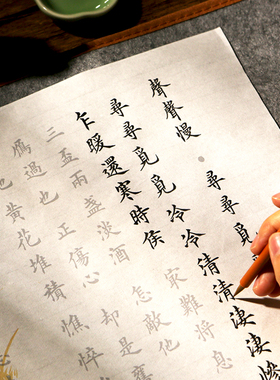 聲聲慢 尋尋覓
尋尋覓覓冷冷清清淒淒慘
乍暖還寒時候 難將息
三盃兩盞淡酒 怎敵他
鴈過也 正傷心 却是
也黃花堆積 憔悴